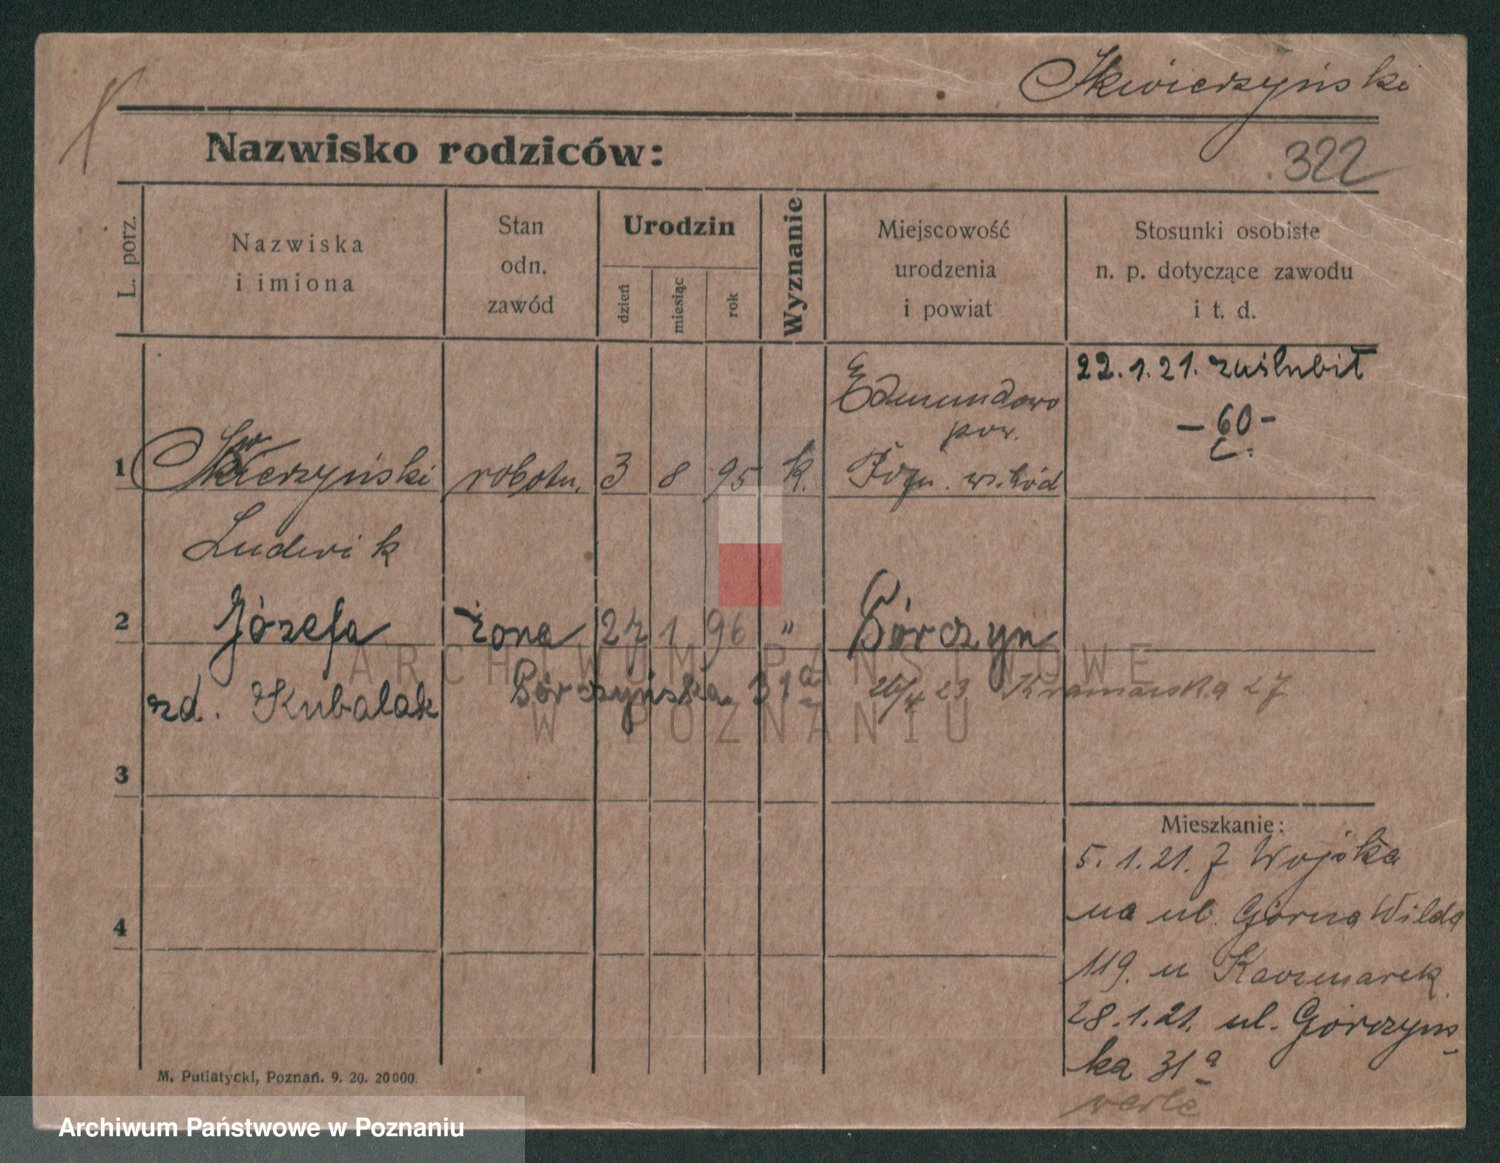 Skwierzyński
Nazwisko rodziców:
322
L. porz.
Nazwiska
i imiona
Stan
odn.
zawód
Urodzin
dzień
miesiąc
rok
Wyznanie
Miejscowość
urodzenia
i powiat
Stosunki osobiste
n. p. dotyczące zawodu
i t. d.
22.1.21. zaślubił
-60-
Edmundowo
pow.
1 Skwierzyński robotn. 3 8 95 k. Pozn. wschód
Ludwik
2 Józefa żona 27 1 96 " Górczyn
zd. Kubalak Górczyńska 31a 26/4 23 Kramarska 27
3
Mieszkanie:
5.1.21. Z Wojska
na ul. Górna Wilda
119. u Kaczmarek
4
28.1.21. ul. Górczyńs
ka 31a
verte
M. Putiatycki, Poznań. 9. 20. 20000.
ARCHIWUM PAŃSTWOWE
W POZNANIU
Archiwum Państwowe w Poznaniu